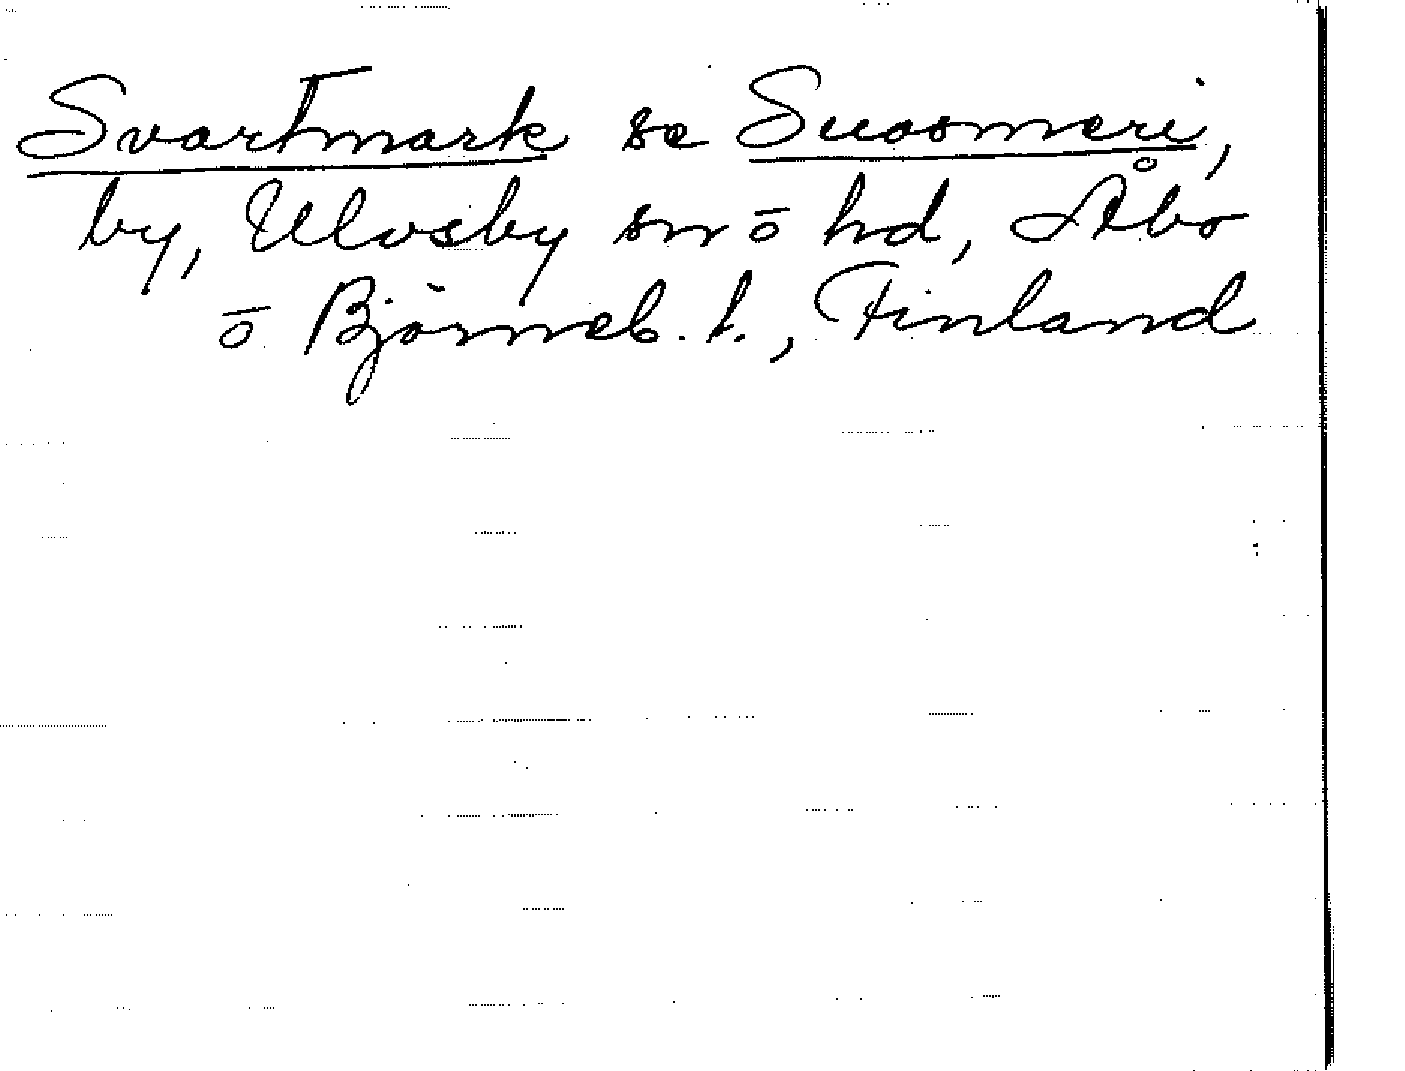 Svartmark se Suosmeri,
by, Ulvsby sn o hd, Åbo
o Björneb. l., Finland